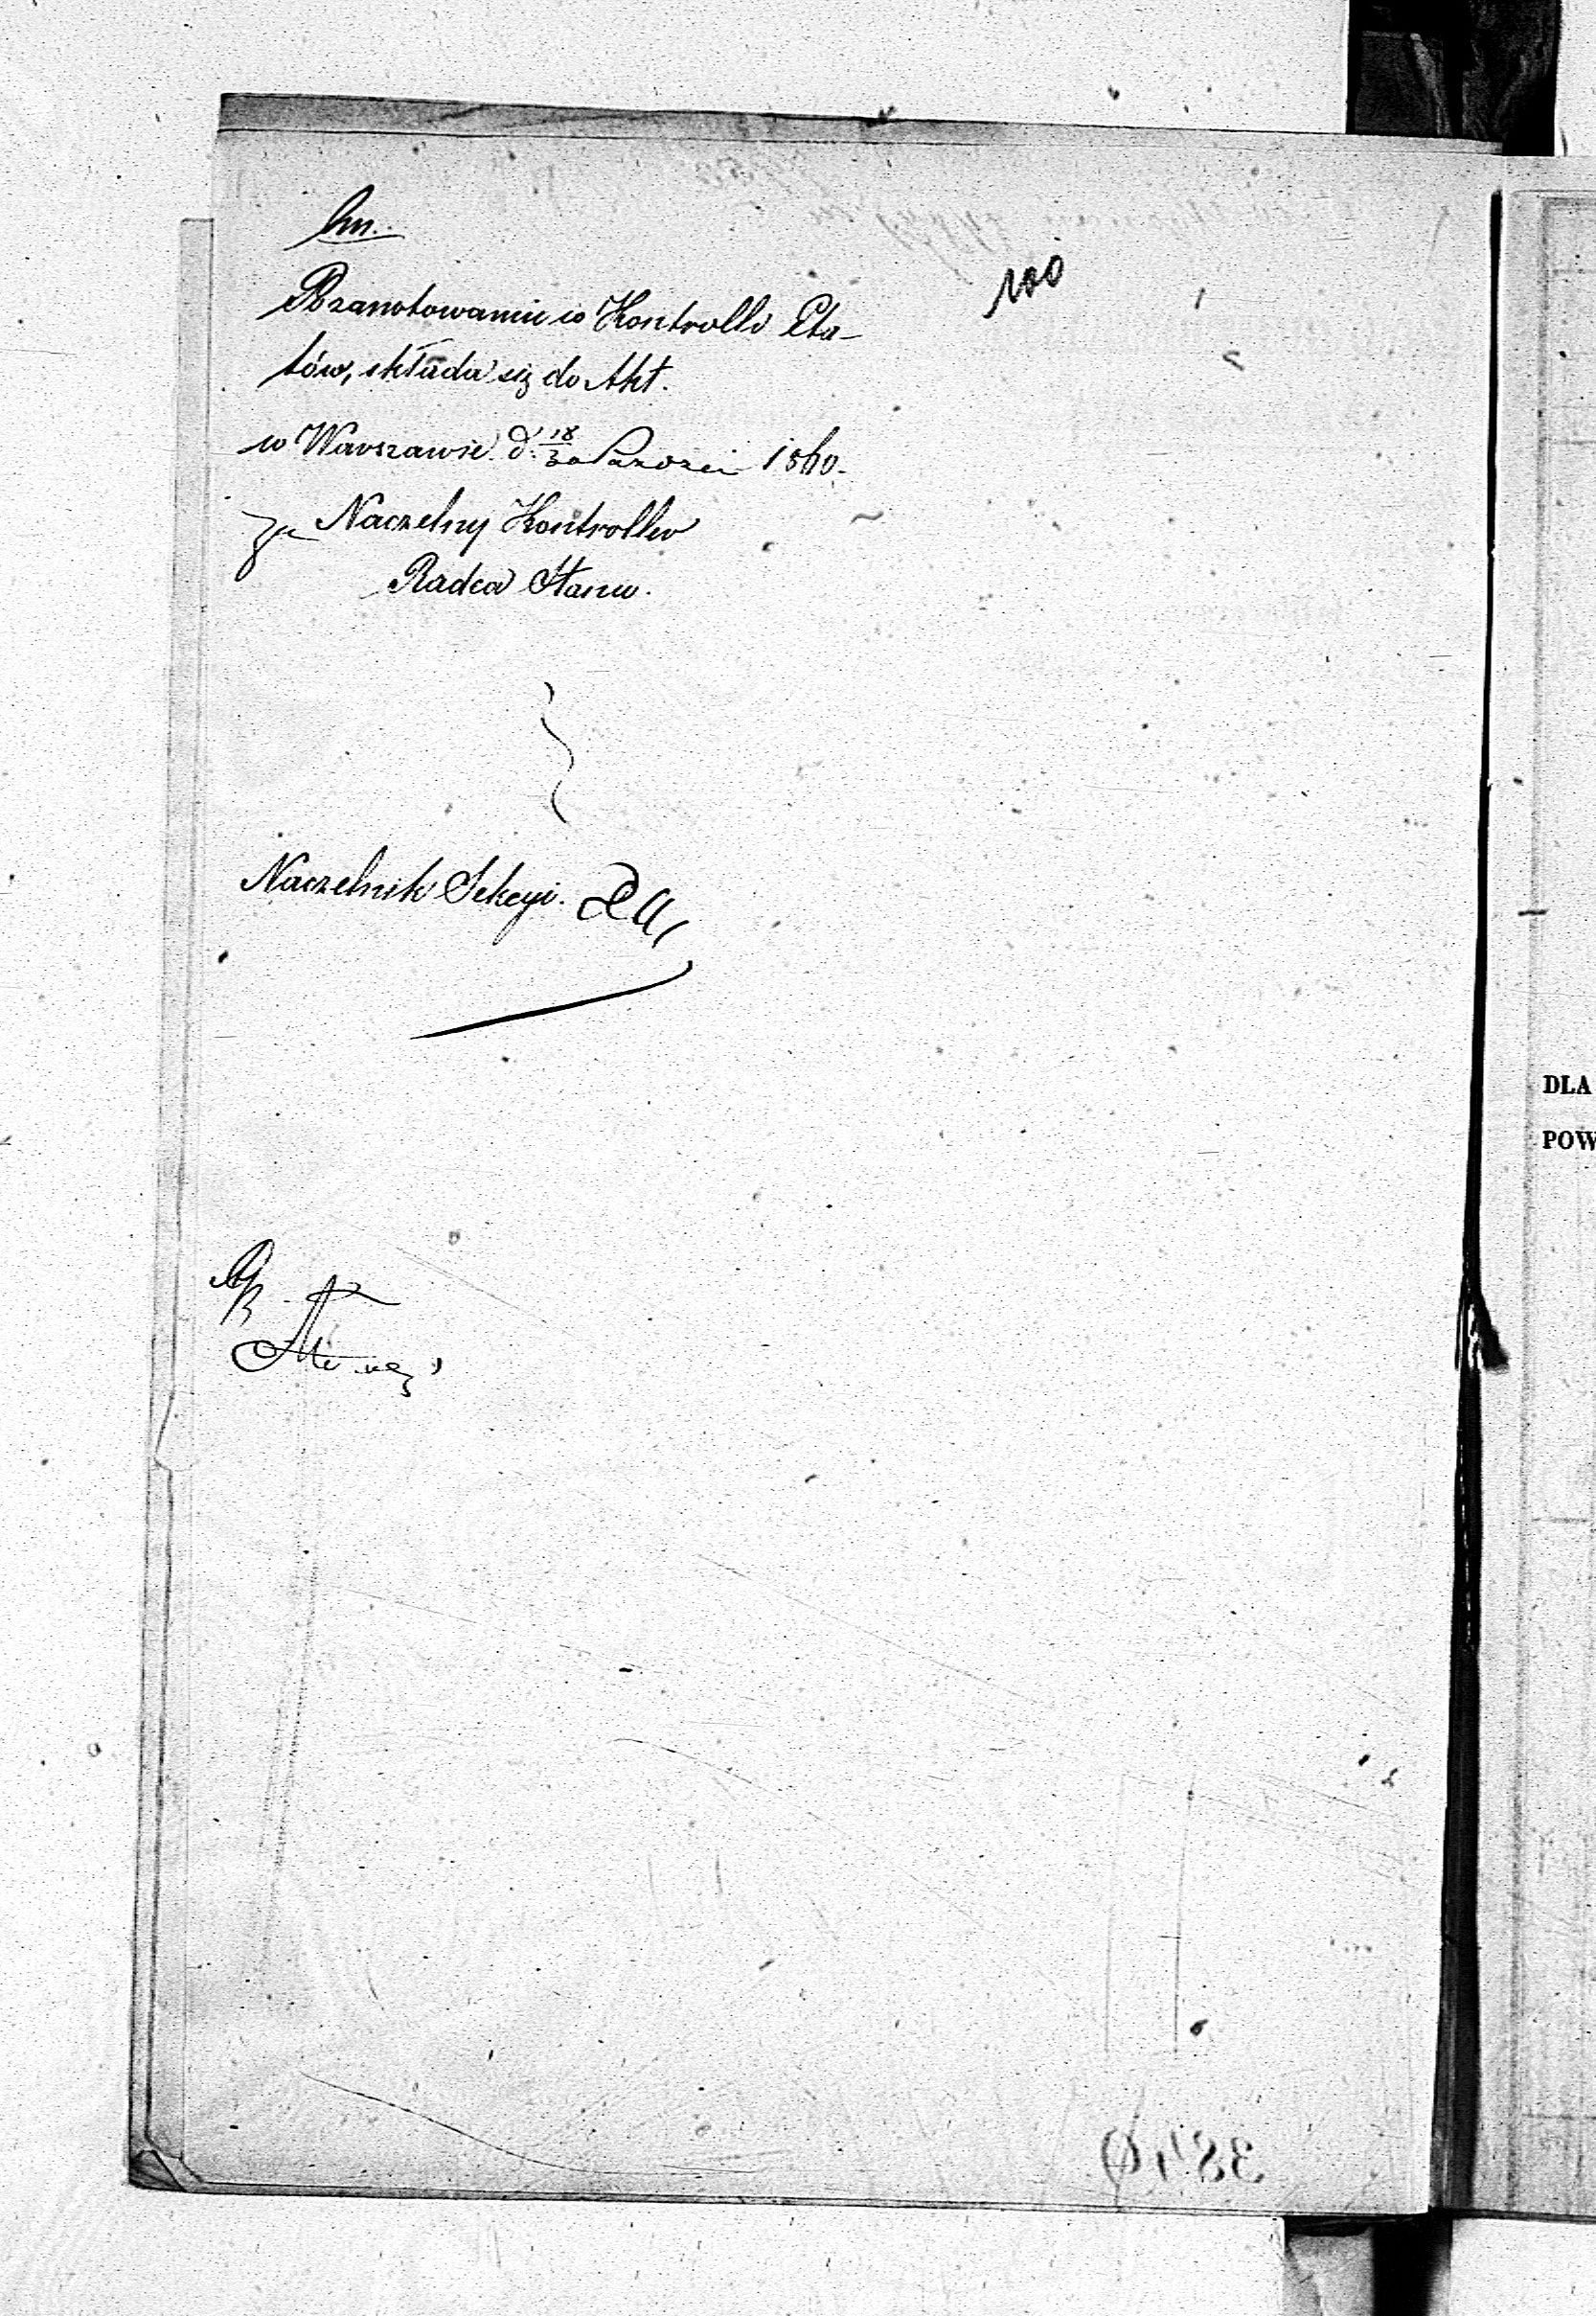 100
Po zanotowaniu w Kontrolli Eta-
tów, składa się do Akt.
w Warszawie d. 18/30 Paździer 1860.
Za Naczelny Kontroller
Radca Stanu.
Naczelnik Sekcyi.
DLA
POW